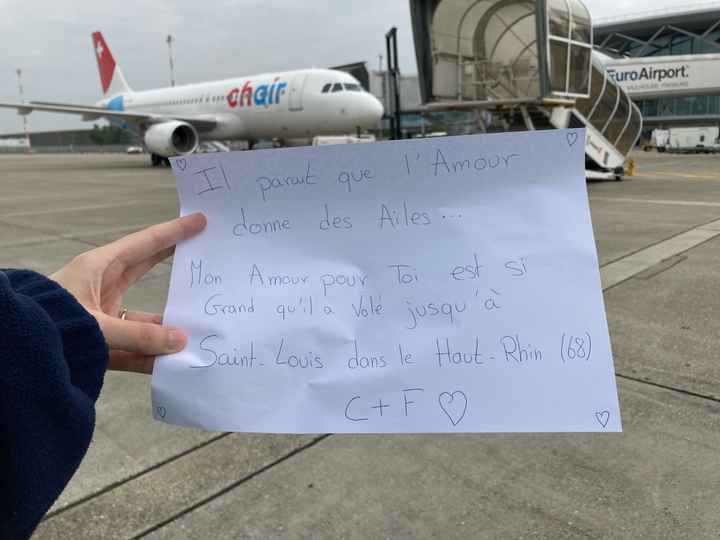 chair
EuroAirport.
Il parait que l'Amour
donne des Ailes...
Mon Amour pour Toi est si
Grand qu'il a Volé jusqu'à
Saint-Louis dans le Haut-Rhin (68)
C + F ♡